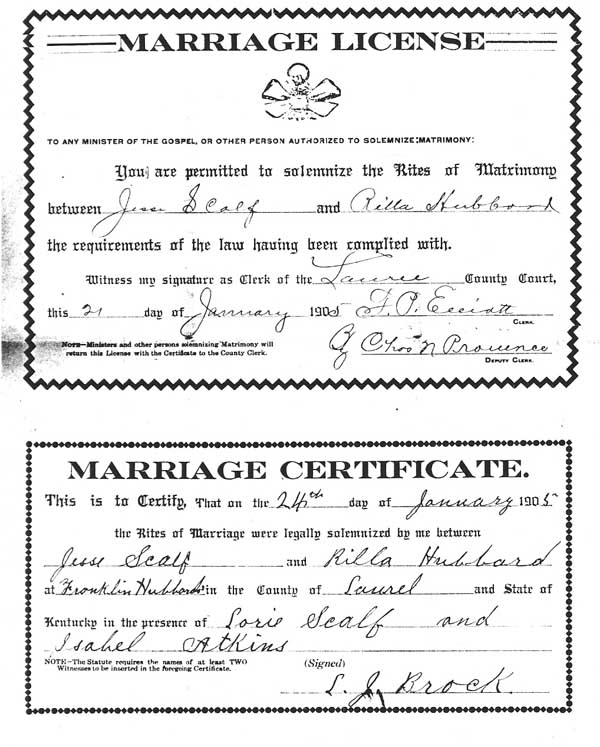 MARRIAGE LICENSE
TO ANY MINISTER OF THE GOSPEL, OR OTHER PERSON AUTHORIZED TO SOLEMNIZE MATRIMONY:
You are permitted to solemnize the Rites of Matrimony
between Jesse Scalf and Rilla Hubbard
the requirements of the law having been complied with.
Witness my signature as Clerk of the Laurel County Court,
this 21 day of January 1905 F. P. Elliott
CLERK.
NOTE—Ministers and other persons solemnizing Matrimony will
return this License with the Certificate to the County Clerk.
By Chas N Provence
DEPUTY CLERK.
MARRIAGE CERTIFICATE.
This is to Certify, That on the 24th day of January 1905
the Rites of Marriage were legally solemnized by me between
Jesse Scalf and Rilla Hubbard
at Franklin Hubbards in the County of Laurel and State of
Kentucky in the presence of Lorie Scalf and
Isabel Atkins
NOTE—The Statute requires the names of at least TWO
Witnesses to be inserted in the foregoing Certificate.
(Signed)
L. J. Brock.